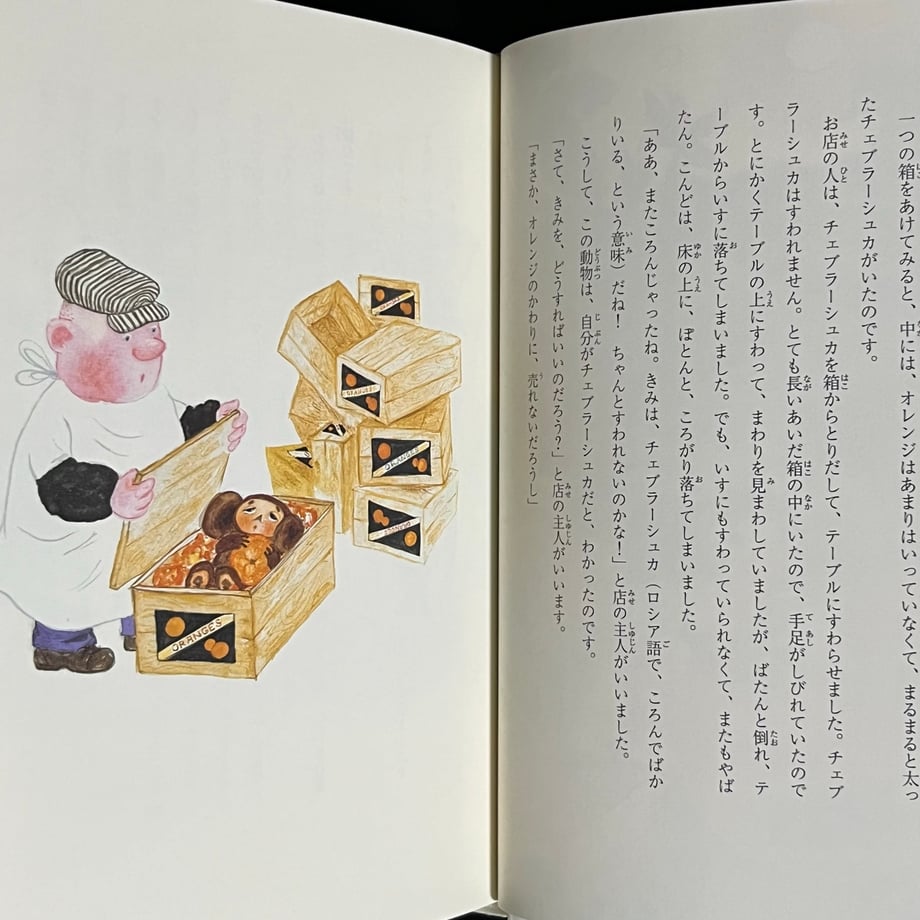 一つの箱をあけてみると、中には、オレンジはあまりはいっていなくて、まるまると太っ
たチェブラーシュカがいたのです。
お店の人は、チェブラーシュカを箱からとりだして、テーブルにすわらせました。チェブ
ラーシュカはすわれません。とても長いあいだ箱の中にいたので、手足がしびれていたので
す。とにかくテーブルの上にすわって、まわりを見まわしていましたが、ばたんと倒れ、テ
ーブルからいすに落ちてしまいました。でも、いすにもすわっていられなくて、またもやば
たん。こんどは、床の上に、ぽとんと、ころがり落ちてしまいました。
「ああ、またころんじゃったね。きみは、チェブラーシュカ（ロシア語で、ころんでばか
りいる、という意味）だね！　ちゃんとすわれないのかな！」と店の主人がいいました。
こうして、この動物は、自分がチェブラーシュカだと、わかったのです。
「さて、きみを、どうすればいいのだろう？」と店の主人がいいます。
「まさか、オレンジのかわりに、売れないだろうし」
ORANGES
ORANGES
ORANGES
ORANGES
ORANGES